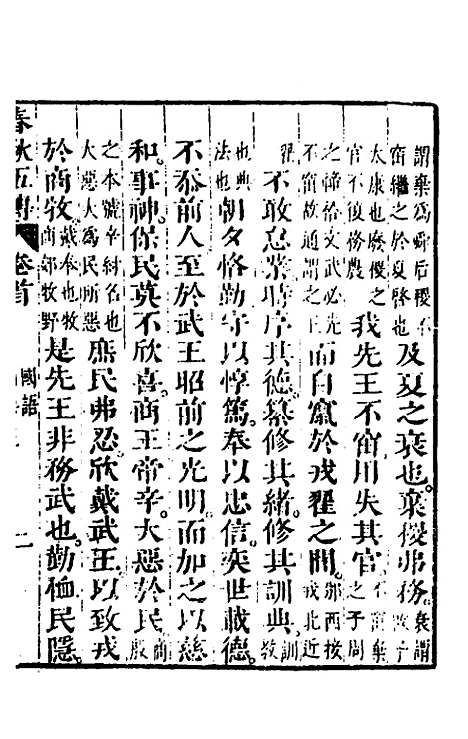 謂棄爲舜后稷不窋繼之於夏啓也及夏之衰也。棄稷弗務。衰謂啓子
太康也廢稷之官不復務農我先王不窋用失其官。不窋棄之子周
之禘祫文武必先不窋故通謂之王而自竄於戎翟之間。邠西接戎北近
翟不敢怠業。時序其德。纂修其緒。修其訓典。訓教
也典法也朝夕恪勤。守以惇篤。奉以忠信。奕世載德。
不忝前人。至於武王。昭前之光明。而加之以慈
和。事神保民。莫不欣喜。商王帝辛。大惡於民。商殷
之本號辛紂名也大惡大爲民所惡庶民弗忍。欣戴武王。以致戎
於商牧。戴奉也牧商郊牧野是先王非務武也。勤恤民隱。
春秋五傳 卷首 國語 二